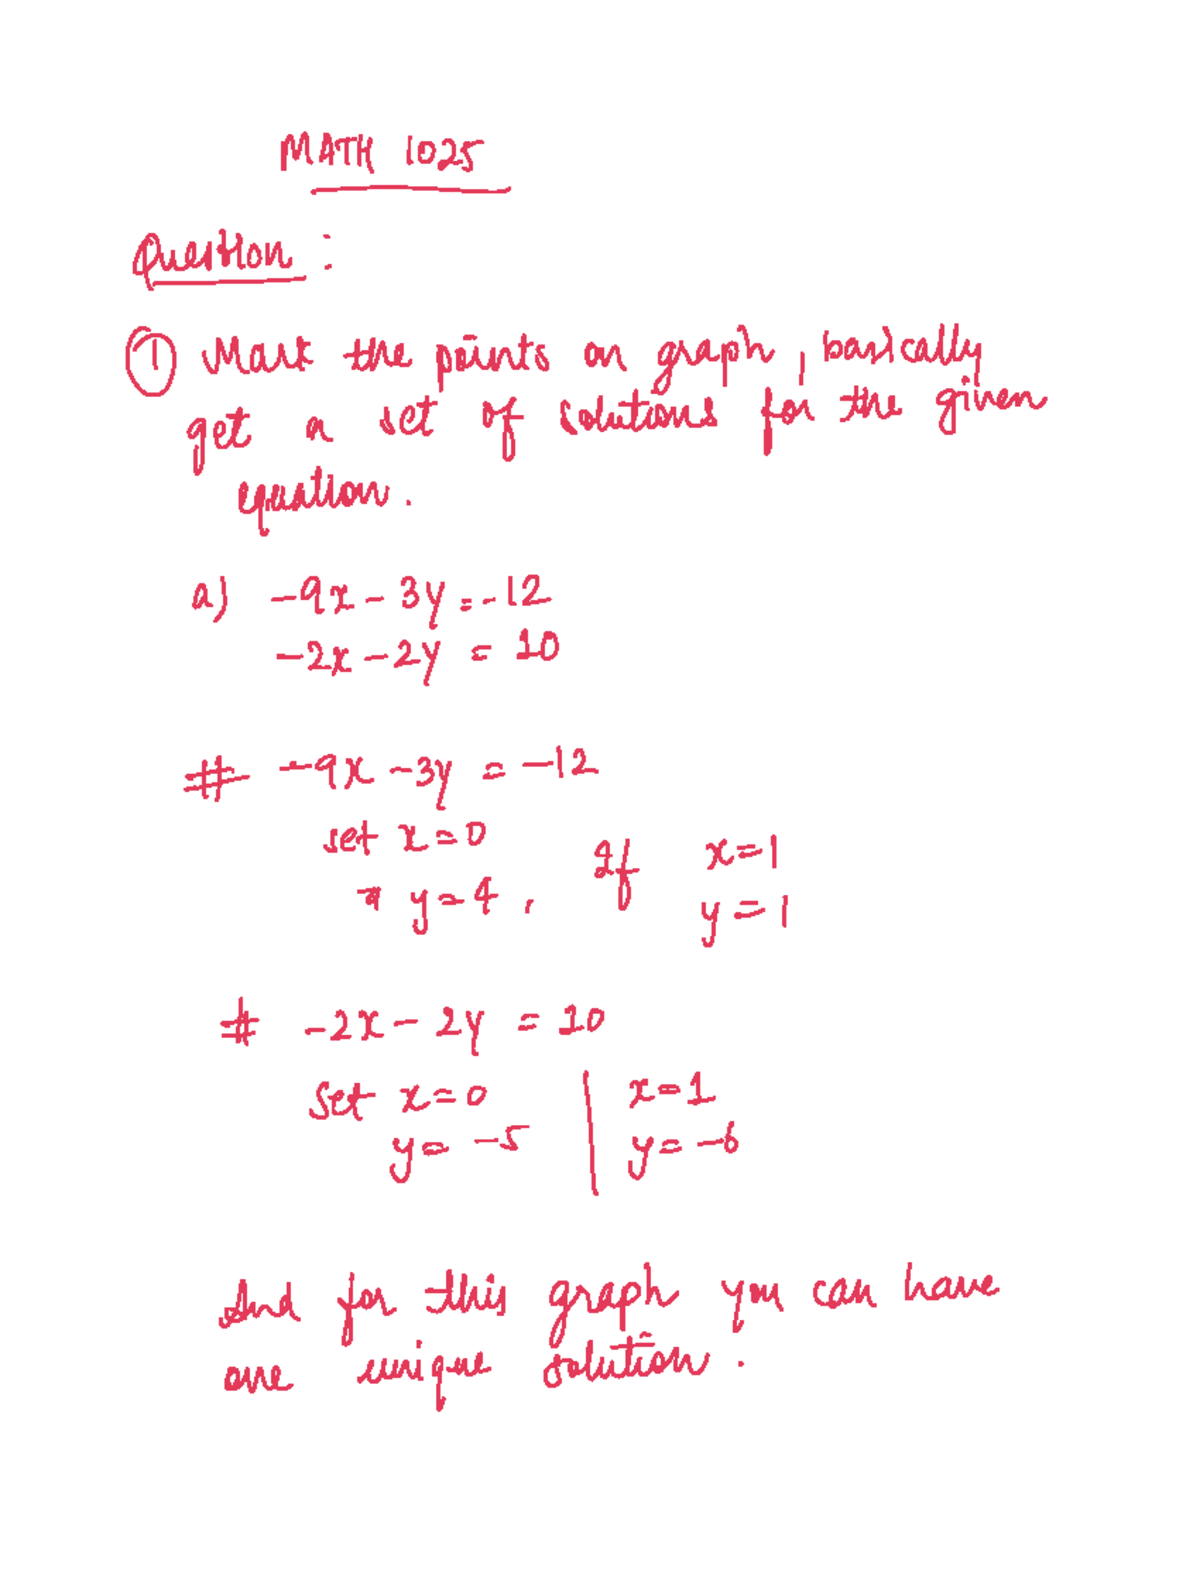 MATH 1025
Question :
① Mark the points on graph, basically
get a set of solutions for the given
equation.
a) -9x - 3y = -12
-2x - 2y = 10
# -9x - 3y = -12
set x=0
y=4, If x=1
y=1
# -2x - 2y = 10
Set x=0 | x=1
y= -5 | y= -6
And for this graph you can have
one unique solution.